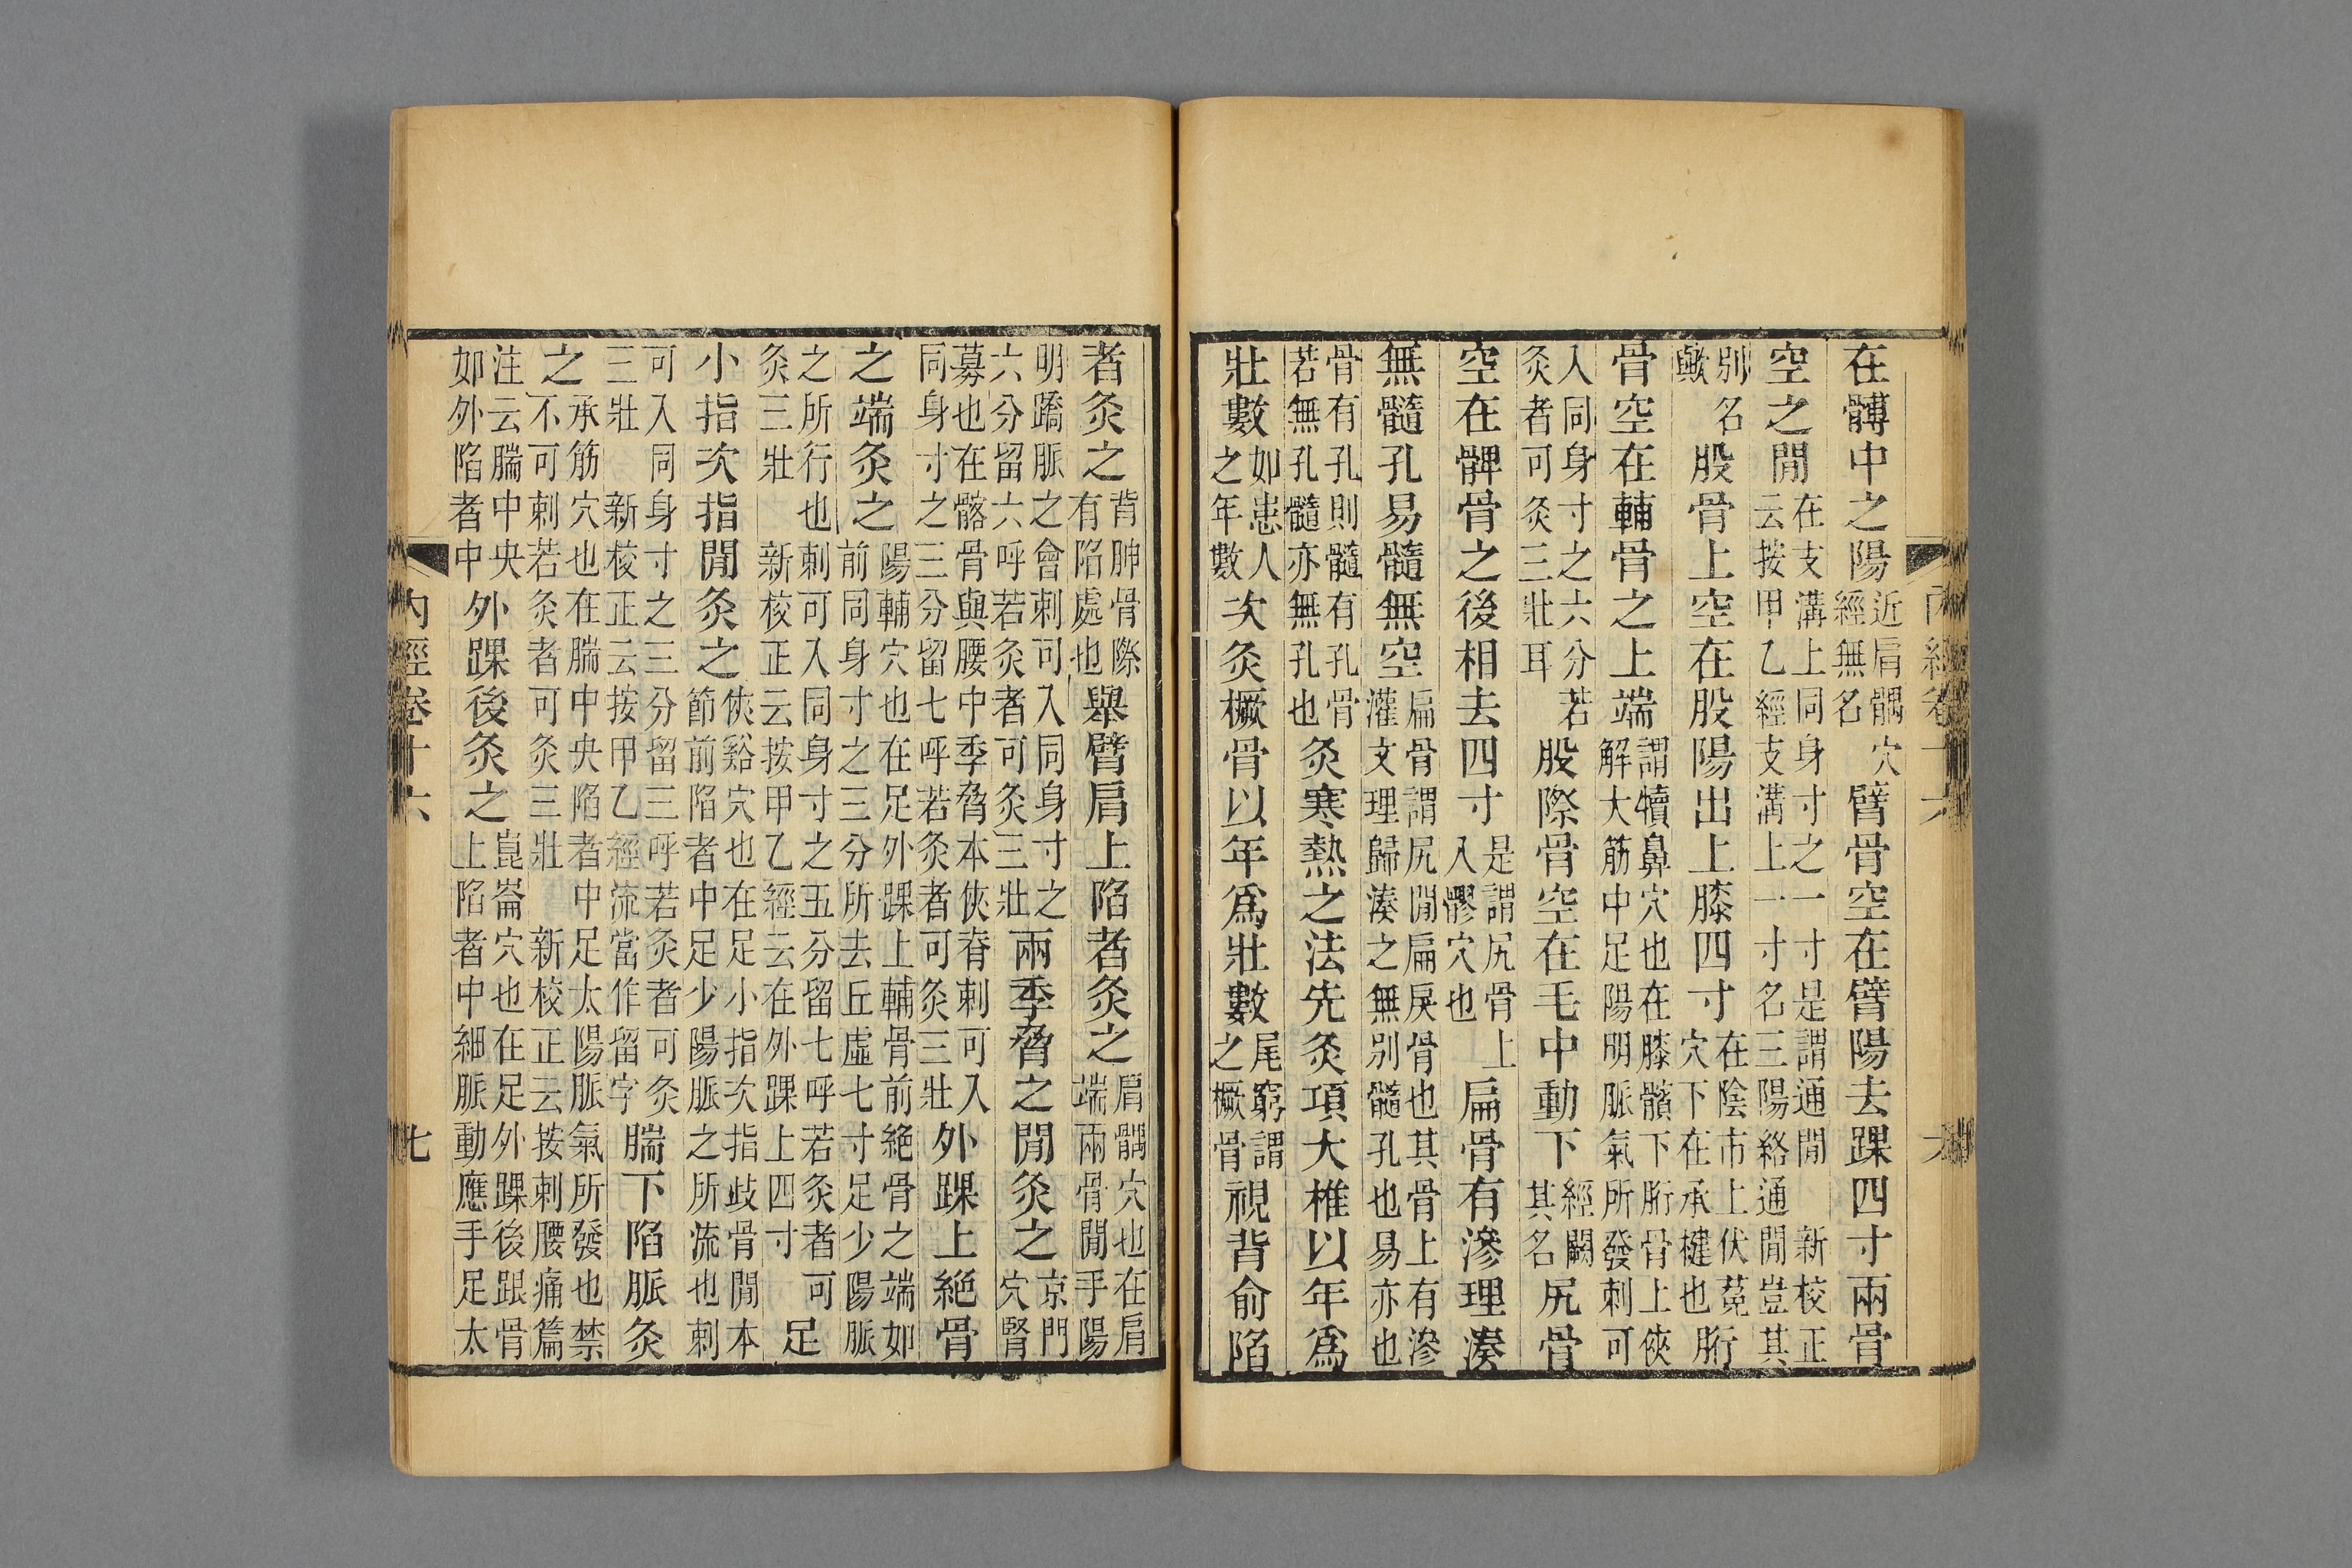 在髆中之陽近肩髃穴經無名臂骨空在臂陽去踝四寸兩骨
空之閒在支溝上同身寸之一寸是謂通閒 新校正云按甲乙經支溝上一寸名三陽絡通閒豈其
別名歟股骨上空在股陽出上膝四寸在陰市上伏菟穴下在承楗也胻
骨空在輔骨之上端謂犢鼻穴也在膝髕下胻骨上俠解大筋中足陽明脈氣所發刺可
入同身寸之六分若灸者可灸三壯耳股際骨空在毛中動下經闕其名尻骨
空在髀骨之後相去四寸是謂尻骨上入髎穴也扁骨有滲理湊
無髓孔易髓無空扁骨謂尻閒扁戾骨也其骨上有滲灌文理歸湊之無別髓孔也易亦也
骨有孔則髓有孔骨若無孔髓亦無孔也灸寒熱之法先灸項大椎以年爲
壯數如患人之年數次灸橛骨以年爲壯數尾窮謂之橛骨視背俞陷
者灸之背胂骨際有陷處也舉臂肩上陷者灸之肩髃穴也在肩端兩骨閒手陽
明蹻脈之會刺可入同身寸之六分留六呼若灸者可灸三壯兩季脅之閒灸之京門穴腎
募也在髂骨與腰中季脅本俠脊刺可入同身寸之三分留七呼若灸者可灸三壯外踝上絕骨
之端灸之陽輔穴也在足外踝上輔骨前絕骨之端如前同身寸之三分所去丘虛七寸足少陽脈
之所行也刺可入同身寸之五分留七呼若灸者可灸三壯 新校正云按甲乙經云在外踝上四寸足
小指次指閒灸之俠谿穴也在足小指次指歧骨閒本節前陷者中足少陽脈之所流也刺
可入同身寸之三分留三呼若灸者可灸三壯 新校正云按甲乙經流當作留字腨下陷脈灸
之承筋穴也在腨中央陷者中足太陽脈氣所發也禁不可刺若灸者可灸三壯 新校正云按刺腰痛篇
注云腨中央如外陷者中外踝後灸之崑崙穴也在足外踝後跟骨上陷者中細脈動應手足太
內經卷十六 七